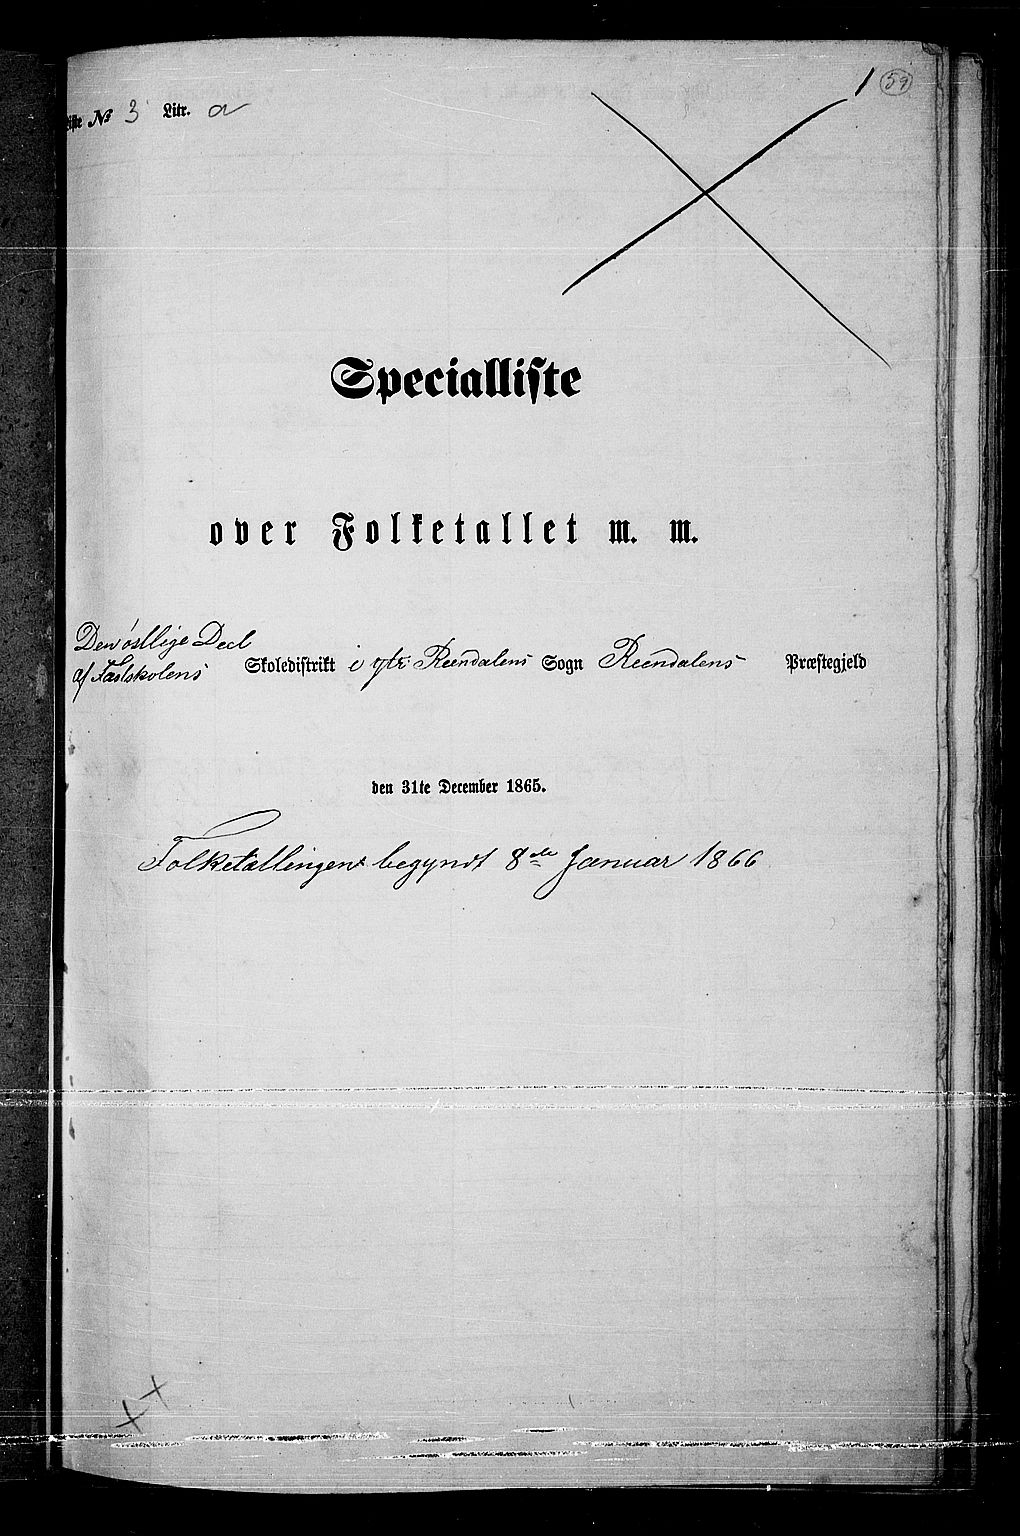 1 59
Liste № 3 Litr. a
Specialliste
over Folketallet m. m.
Den östlige Deel
af Fastskolens Skoledistrikt i ytre Reendalens Sogn Reendalens Præstegjeld
den 31te December 1865.
Folketællingen begyndt 8de Januar 1866